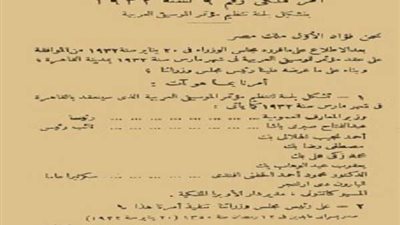 أمر ملكى رقم ٩ لسنة ١٩٣٢
بتشكيل لجنة تنظيم مؤتمر الموسيقى العربية
نحن فؤاد الأول ملك مصر
بعد الاطلاع على ما قرره مجلس الوزراء فى ٢٠ يناير سنة ١٩٣٢ من الموافقة
على عقد مؤتمر للموسيقى العربية فى شهر مارس سنة ١٩٣٢ بمدينة القاهرة ؛
وبناء على ما عرضه علينا رئيس مجلس وزرائنا ؛
أمرنا بما هو آت :
١ – تشكل لجنة لتنظيم مؤتمر الموسيقى العربية الذى سينعقد بالقاهرة
فى شهر مارس سنة ١٩٣٢ كما يأتى :
وزير المعارف العمومية ... ... ... ... رئيسا
عبد الفتاح صبرى باشا ... ... ... نائب رئيس
أحمد نجيب الهلالى بك
مصطفى رضا بك
محمد زكى على بك
يعقوب عبد الوهاب بك
الدكتور محمود أحمد الحفنى أفندى ... ... سكرتيرا عاما
البارون دى أرلنجر
المسيو كانتونى ، مدير دار الأوبرا الملكية .
٢ – على رئيس مجلس وزرائنا تنفيذ أمرنا هذا ؎
صدر بسراى عابدين فى ١٢ رمضان سنة ١٣٥٠ (٢٠ يناير سنة ١٩٣٢)